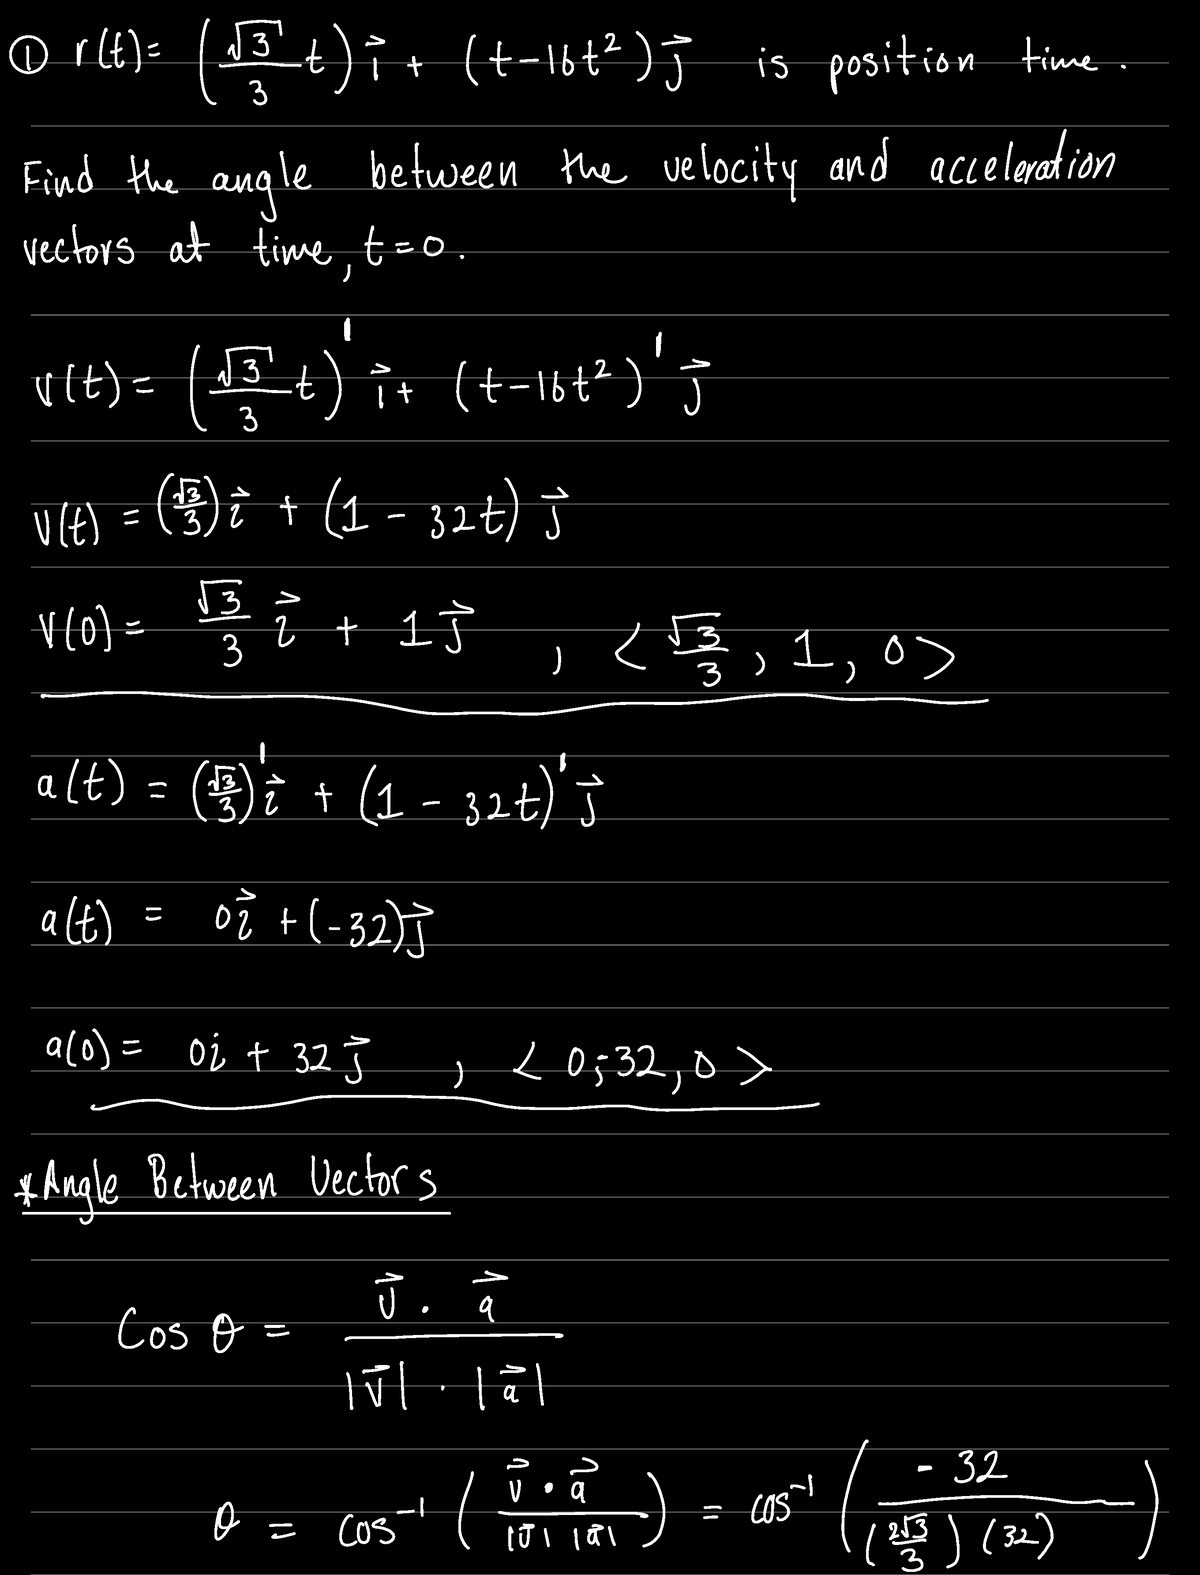 ① r(t) = (√3/3 t) i⃗ + (t-16t²) j⃗ is position time.
Find the angle between the velocity and acceleration
vectors at time, t=0.
v(t) = (√3/3 t)' i⃗ + (t-16t²)' j⃗
v(t) = (√3/3) i⃗ + (1 - 32t) j⃗
v(0) = √3/3 i⃗ + 1 j⃗ , < √3/3 , 1, 0>
a(t) = (√3/3)' i⃗ + (1 - 32t)' j⃗
a(t) = 0i⃗ + (-32) j⃗
a(0) = 0i + 32 j⃗ , < 0,-32, 0 >
* Angle Between Vectors
Cos θ = v⃗ · a⃗ / |v⃗| · |a⃗|
θ = cos⁻¹ ( v⃗ · a⃗ / |v⃗| |a⃗| ) = cos⁻¹ ( -32 / (2√3/3) (32) )